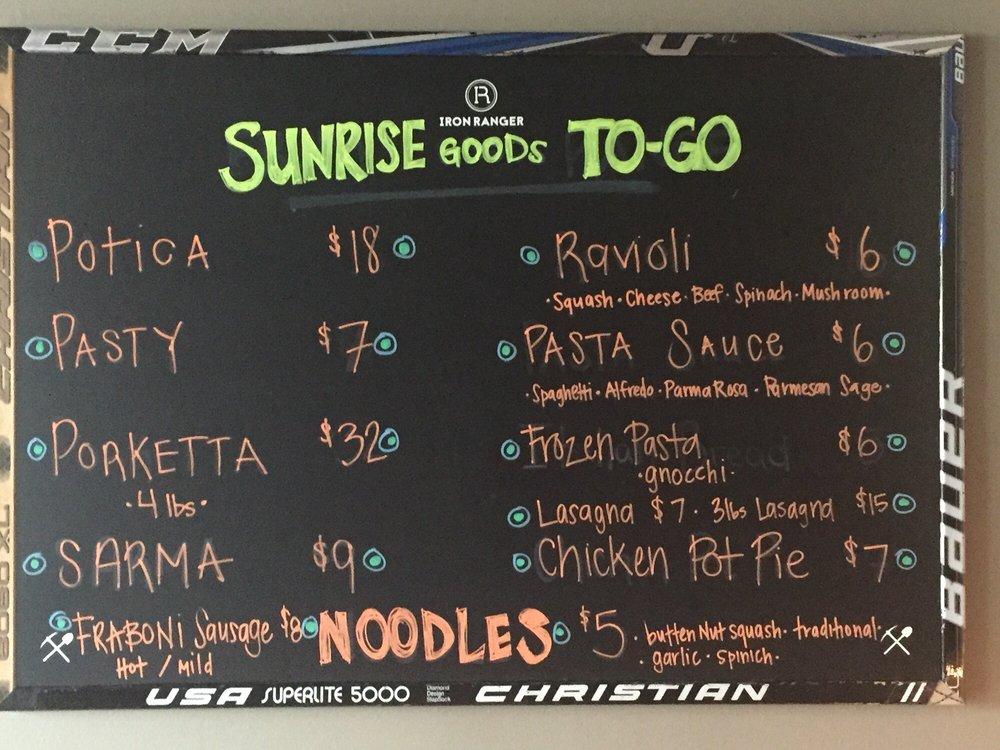 CCM
BAU
IRON RANGER
SUNRISE GOODS TO-GO
POTICA $18
PASTY $7
PORKETTA $32
·4 lbs·
SARMA $9
FRABONI Sausage $8
Hot / Mild
Ravioli $6
·Squash·Cheese·Beef·Spinach·Mushroom·
PASTA SAUCE $6
·Spaghetti·Alfredo·Parma Rosa·Parmesan Sage·
Frozen Pasta $6
·gnocchi·
Lasagna $7· 3lbs Lasagna $15
Chicken Pot Pie $7
NOODLES $5
·butternut squash·traditional·
·garlic·spinich·
BAUER
8080 XL
CHRISTIAN
USA SUPERLITE 5000
CHRISTIAN